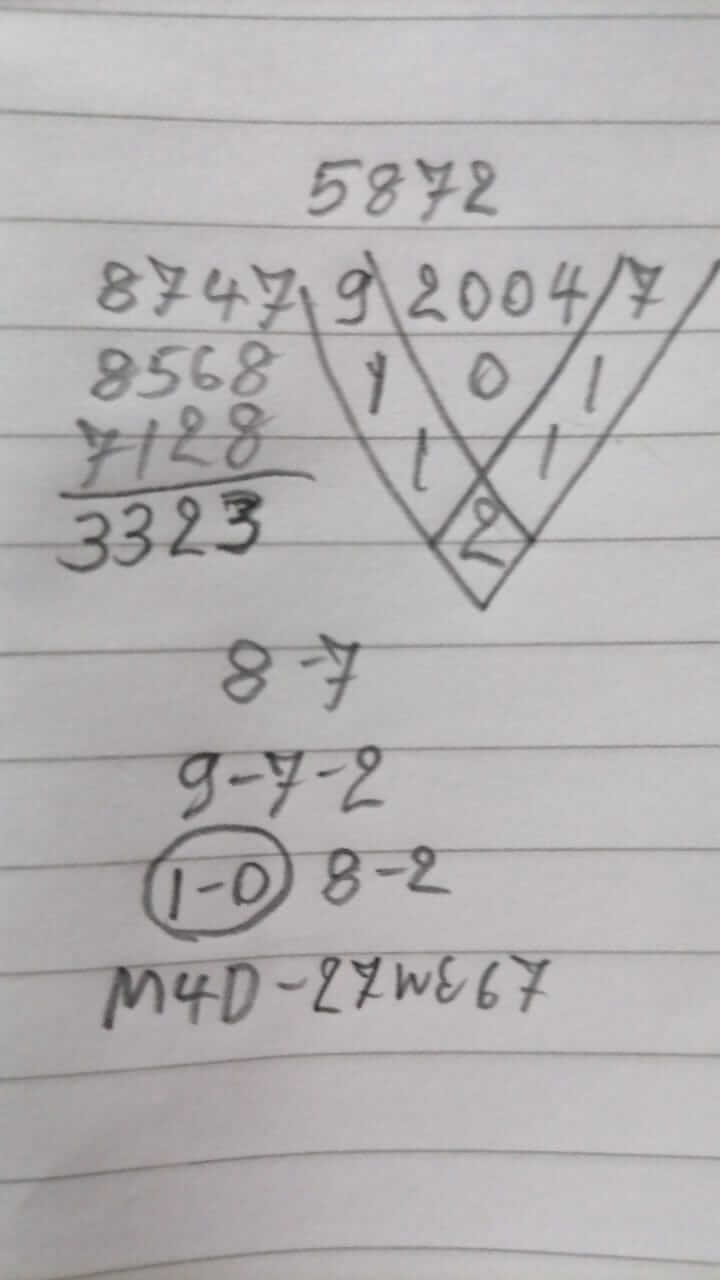 5872
8747 9 2004 7
8568 1 0 1
7128 1 1
3323 2
8-7
9-7-2
1-0 8-2
M4D-27WE67